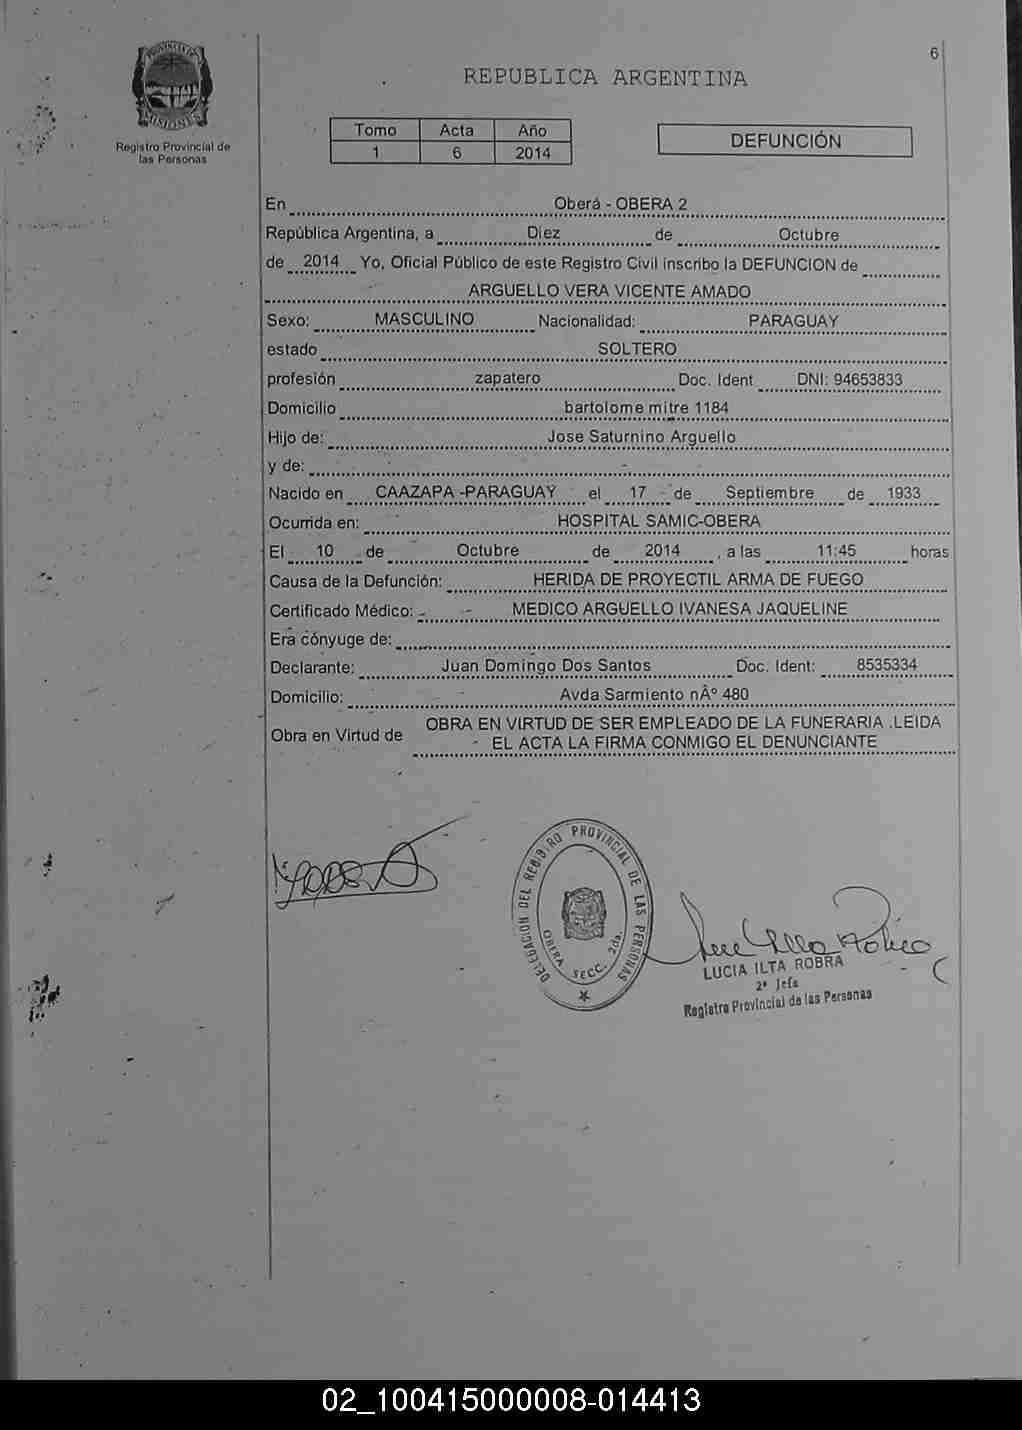 6
REPUBLICA ARGENTINA
PROVINCIA DE
MISIONES
Registro Provincial de
las Personas
Tomo Acta Año
1 6 2014
DEFUNCIÓN
En Oberá - OBERA 2
República Argentina, a Diez de Octubre
de 2014 Yo, Oficial Público de este Registro Civil inscribo la DEFUNCION de
ARGUELLO VERA VICENTE AMADO
Sexo: MASCULINO Nacionalidad: PARAGUAY
estado SOLTERO
profesión zapatero Doc. Ident DNI: 94653833
Domicilio bartolome mitre 1184
Hijo de: Jose Saturnino Arguello
y de: -
Nacido en CAAZAPA -PARAGUAY el 17 de Septiembre de 1933
Ocurrida en: HOSPITAL SAMIC-OBERA
El 10 de Octubre de 2014 , a las 11:45 horas
Causa de la Defunción: HERIDA DE PROYECTIL ARMA DE FUEGO
Certificado Médico: MEDICO ARGUELLO IVANESA JAQUELINE
Era cónyuge de:
Declarante: Juan Domingo Dos Santos Doc. Ident: 8535334
Domicilio: Avda Sarmiento nÂº 480
Obra en Virtud de OBRA EN VIRTUD DE SER EMPLEADO DE LA FUNERARIA .LEIDA
EL ACTA LA FIRMA CONMIGO EL DENUNCIANTE
DELEGACION DEL REGISTRO PROVINCIAL DE LAS PERSONAS
OBERA SECC. 2da.
LUCIA ILTA ROBRA
2ª Jefa
Registro Provincial de las Personas
02_100415000008-014413